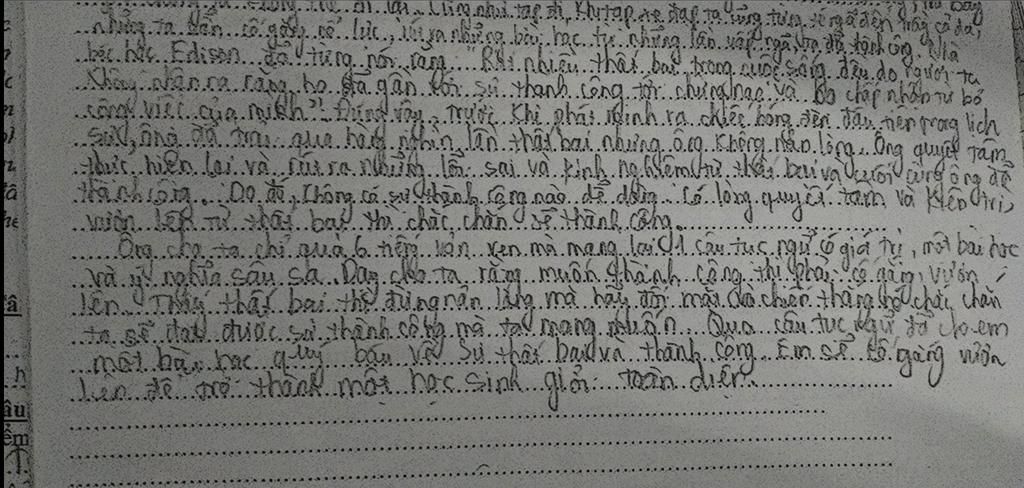 đi lại. Cũng như tập đi, khi tập xe đạp ta cũng từng té ngã đến trầy cả da,
nhưng ta vẫn cố gắng nỗ lực, rút ra những bài học từ những lần vấp ngã, Nhà
bác học Edison đã từng nói rằng "Rất nhiều thất bại trong cuộc sống đều do người ta
không nhận ra rằng họ đã gần tới sự thành công tới chừng nào và họ chấp nhận từ bỏ
công việc của mình". Đúng vậy, trước khi phát minh ra chiếc bóng đèn đầu tiên trong lịch
sử, ông đã trải qua hàng nghìn lần thất bại nhưng ông không nản lòng. Ông quyết tâm
thực hiện lại và rút ra những lỗi sai và kinh nghiệm từ thất bại và cuối cùng ông đã
thành công. Do đó, không có sự thành công nào dễ dàng. Có lòng quyết tâm và kiên trì,
vươn lên từ thất bại thì chắc chắn sẽ thành công.
Ông cha ta chỉ qua 6 tiếng vẻn vẹn mà mang lại cả câu tục ngữ có giá trị, một bài học
và ý nghĩa sâu sa. Dạy cho ta rằng muốn thành công thì phải cố gắng, vươn
lên. Thấy thất bại thì đừng nản lòng mà hãy đối mặt và chiến thắng nó chắc chắn
ta sẽ đạt được sự thành công mà ta mong muốn. Qua câu tục ngữ đã cho em
một bài học quý báu về sự thất bại và thành công. Em sẽ cố gắng vươn
lên để trở thành một học sinh giỏi toàn diện.